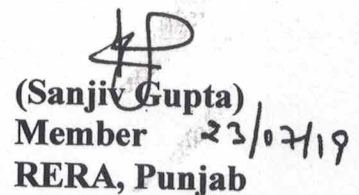 (Sanjiv Gupta)
Member 23/07/19
RERA, Punjab